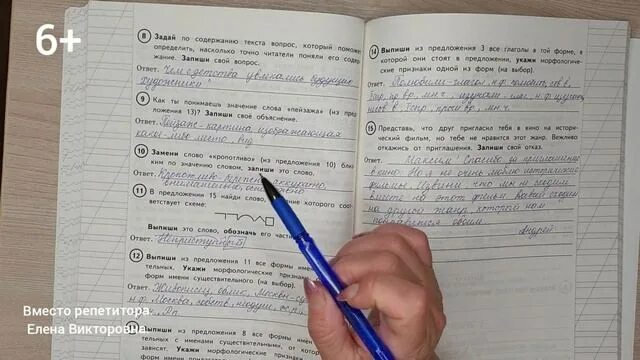 6+
8 Задай по содержанию текста вопрос, который поможет
определить, насколько точно читатели поняли его содер-
жание. Запиши свой вопрос.
Ответ. Чем с детства увлекались будущие
художники
9 Как ты понимаешь значение слова «пейзажа» (из пред-
ложения 13)? Запиши своё объяснение.
Ответ. Пейзаж- картина изображающая
какое-либо место, вид
10 Замени слово «кропотливо» (из предложения 10) близ-
ким по значению словом, запиши это слово.
Ответ. Кропотливо- аккуратно,
внимательно,
11 В предложении 15 найди слово, строение которого соот-
ветствует схеме:
Выпиши это слово, обозначь его части
Ответ. Неприступный
12 Выпиши из предложения 11 все формы имён
тельных. Укажи морфологические признаки
форм имени существительного (на выбор).
Ответ. Живопись, облик, Москвы-
н.ф. Москва, собств., неодуш.,
Выпиши из предложения 8 все формы имён
тельных с именами существительными, от которых
зависят. Укажи морфологические
форм имени
14 Выпиши из предложения 3 все глаголы в той форме, в
которой они стоят в предложении, укажи морфологиче-
ские признаки одной из форм (на выбор).
Ответ. Полюбили- глагол, н.ф. полюбить,
вр., мн.ч.
прош.вр., мн.ч.
15 Представь, что друг пригласил тебя в кино на истори-
ческий фильм, но тебе не нравится этот жанр. Вежливо
откажись от приглашения. Запиши свой отказ.
Ответ. Максим! Спасибо за приглашение
в кино. Но я не очень люблю исторические
фильмы. Извини, что мы не сходим
вместе на этот фильм. Давай сходим
на другой жанр, который нам
понравится обоим.
Андрей
Вместо репетитора.
Елена Викторовна